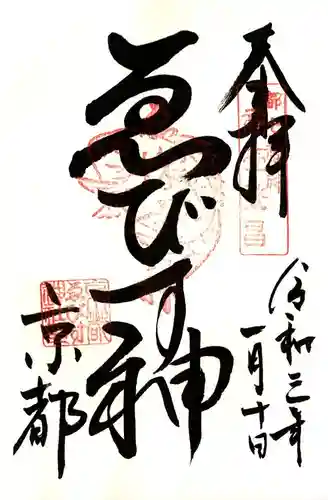 奉拝
ゑびす神
京都
令和三年
一月十日